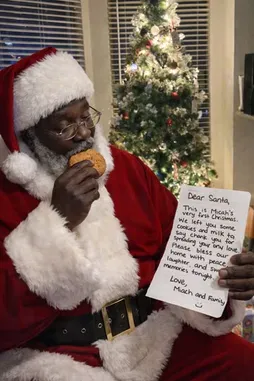 Dear Santa,
This is Micah's
very first Christmas.
We left you some
cookies and milk to
say thank you for
spreading your
joy and love.
Please bless our
home with peace,
laughter, and sweet
memories tonight.
Love,
Micah and Family